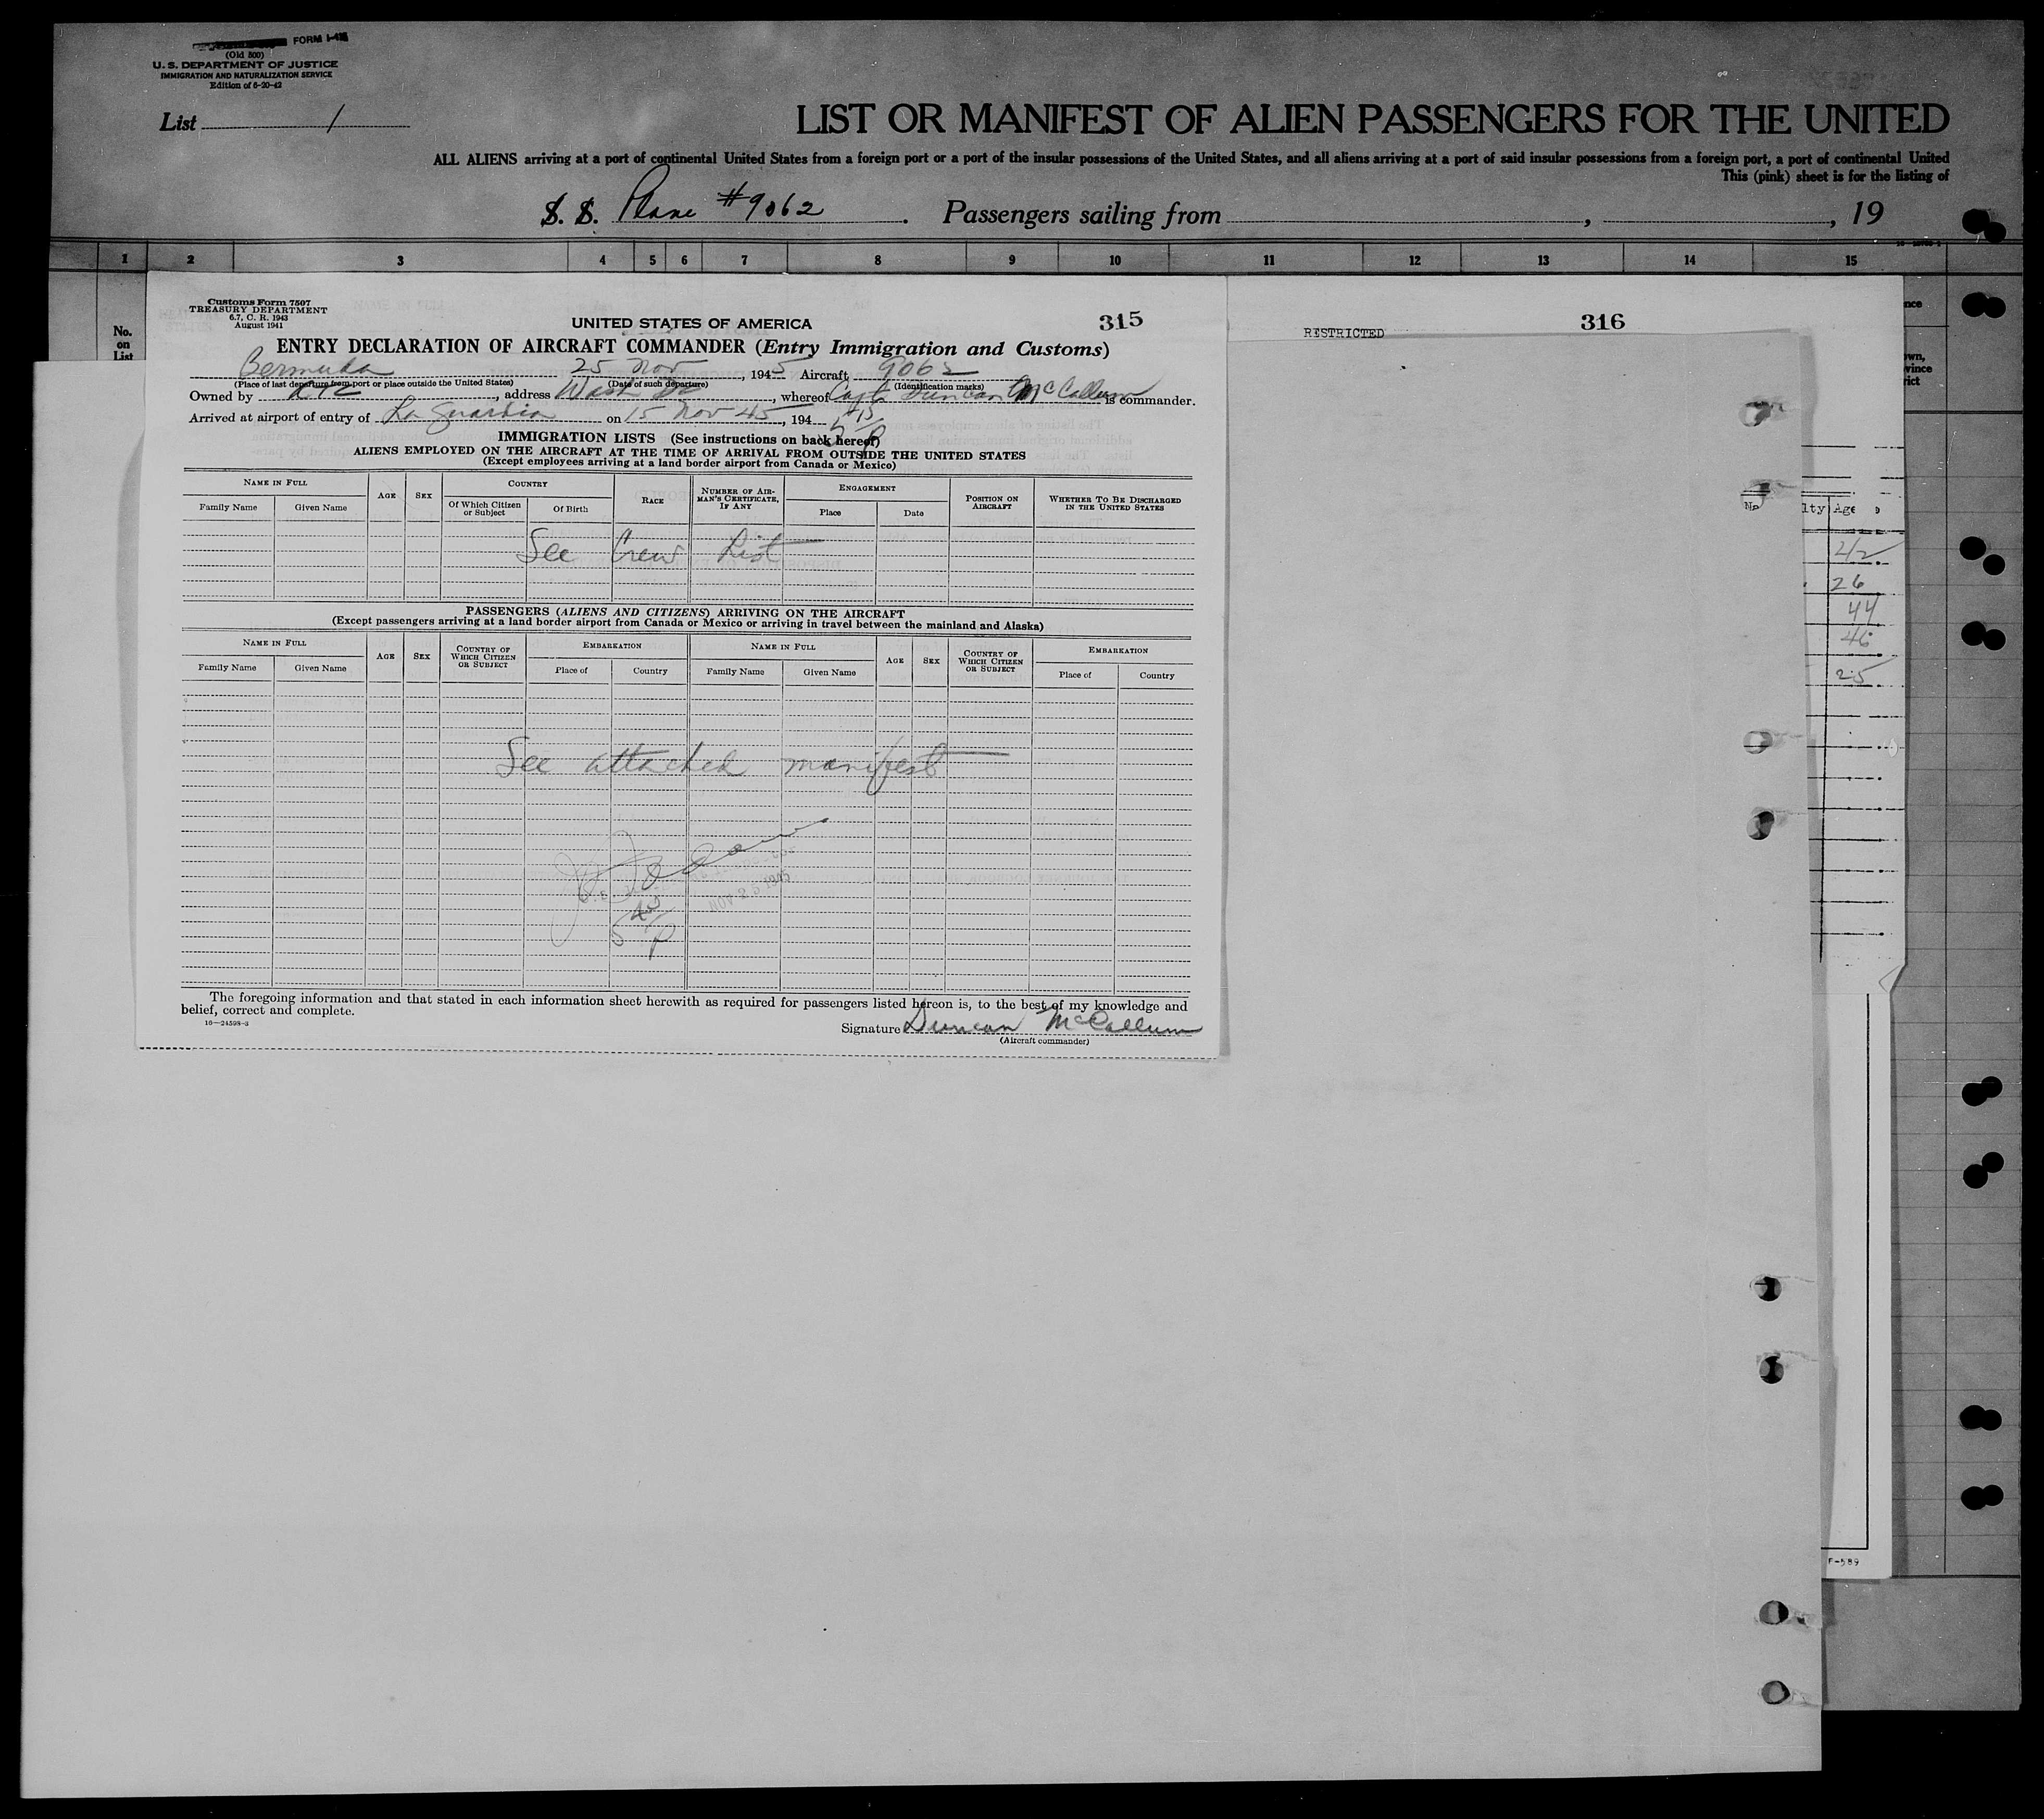 FORM I-415
(Old 500)
U. S. DEPARTMENT OF JUSTICE
IMMIGRATION AND NATURALIZATION SERVICE
Edition of 6-20-42
List 1
LIST OR MANIFEST OF ALIEN PASSENGERS FOR THE UNITED
ALL ALIENS arriving at a port of continental United States from a foreign port or a port of the insular possessions of the United States, and all aliens arriving at a port of said insular possessions from a foreign port, a port of continental United
This (pink) sheet is for the listing of
S. S. Plane #9062. Passengers sailing from , , 19
1 2 3 4 5 6 7 8 9 10 11 12 13 14 15
No. on List
Customs Form 7507
TREASURY DEPARTMENT
6.7, C. R. 1943
August 1941
UNITED STATES OF AMERICA
315
316
RESTRICTED
ENTRY DECLARATION OF AIRCRAFT COMMANDER (Entry Immigration and Customs)
Bermuda 25 Nov, 1945 Aircraft 9062
(Place of last departure from port or place outside the United States) (Date of such departure) (Identification marks)
Owned by ATC, address Wash DC, whereof Capt. Duncan McCallum is commander.
Arrived at airport of entry of La Guardia on 15 Nov 45, 194 5 45 P
IMMIGRATION LISTS (See instructions on back hereof)
ALIENS EMPLOYED ON THE AIRCRAFT AT THE TIME OF ARRIVAL FROM OUTSIDE THE UNITED STATES
(Except employees arriving at a land border airport from Canada or Mexico)
NAME IN FULL AGE SEX COUNTRY RACE NUMBER OF AIRMAN'S CERTIFICATE, IF ANY ENGAGEMENT POSITION ON AIRCRAFT WHETHER TO BE DISCHARGED IN THE UNITED STATES
Family Name Given Name Of Which Citizen or Subject Of Birth Place Date
See Crew List
PASSENGERS (ALIENS AND CITIZENS) ARRIVING ON THE AIRCRAFT
(Except passengers arriving at a land border airport from Canada or Mexico or arriving in travel between the mainland and Alaska)
NAME IN FULL AGE SEX COUNTRY OF WHICH CITIZEN OR SUBJECT EMBARKATION NAME IN FULL AGE SEX COUNTRY OF WHICH CITIZEN OR SUBJECT EMBARKATION
Family Name Given Name Place of Country Family Name Given Name Place of Country
See attached manifest
5 45 P
The foregoing information and that stated in each information sheet herewith as required for passengers listed hereon is, to the best of my knowledge and
belief, correct and complete.
16—24598-3
Signature Duncan McCallum
(Aircraft commander)
lty Age
42
26
44
46
25
F-589